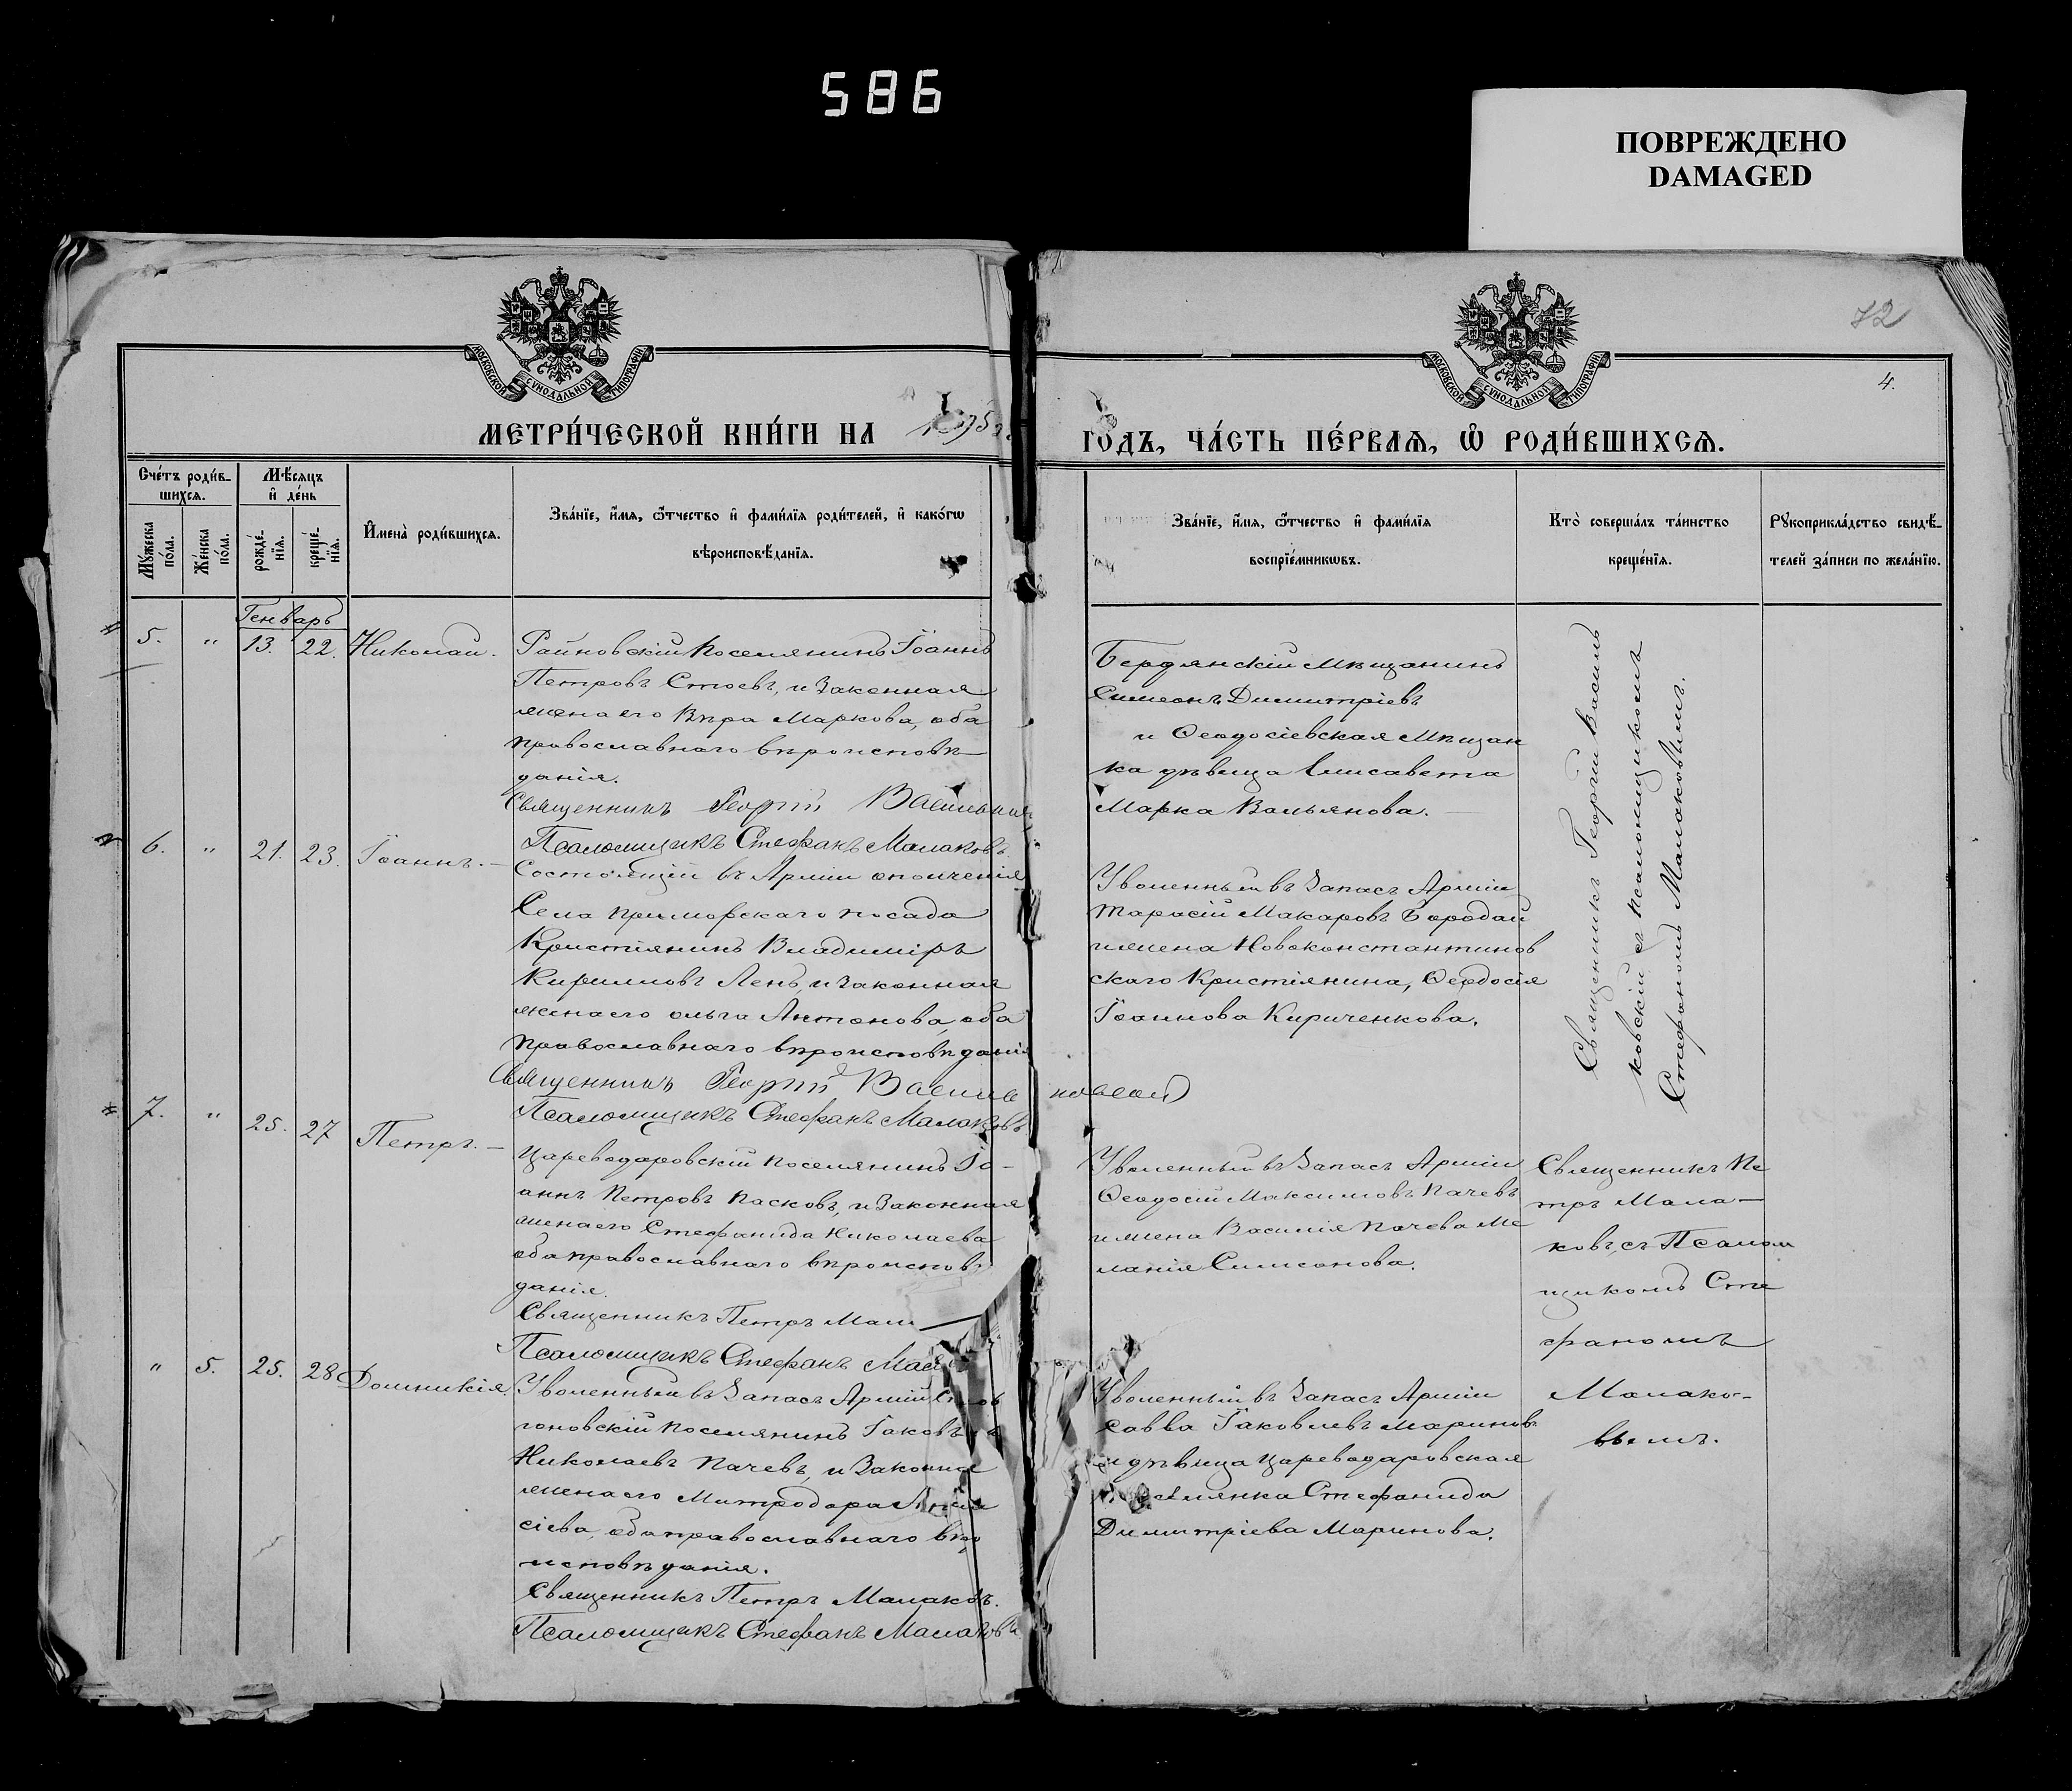 586
ПОВРЕЖДЕНО
DAMAGED
72
4.
МОСКОВСКОЙ СУНОДАЛЬНОЙ ТИПОГРАФІИ
МОСКОВСКОЙ СУНОДАЛЬНОЙ ТИПОГРАФІИ
МЕТРИ́ЧЕСКОЙ КНИ́ГИ НА
ГОДЪ, ЧА́СТЬ ПЕ́РВАѦ, Ѡ РОДИ́ВШИХСѦ.
Сче́тъ роди́в-
шихсѧ.
Мѣ́сяцъ
и де́нь
Мꙋ́жеска по́ла.
Же́нска по́ла.
рожде́-нїѧ.
креще́-нїѧ.
Имена̀ роди́вшихсѧ.
Зва́нїе, и́мѧ, ѻ́тчество и фами́лїѧ роди́телей, и како́гѡ
вѣроисповѣ́данїѧ.
Зва́нїе, и́мѧ, ѻ́тчество и фами́лїѧ
воспрїе́мникѡвъ.
Кто̀ соверша́лъ та́инство
креще́нїѧ.
Рꙋкоприкла́дство свидѣ́-
телей за́писи по жела́нїю.
Генварь
5. " 13. 22. Николай.
Райновскій поселянинъ Іоаннъ
Петровъ Стоевъ, и законная
жена его Вѣра Маркова, оба
православнаго вѣроисповѣ-
данія.
Священникъ Георгій
Псаломщикъ Стефанъ Малаковъ.
Бердянскій мѣщанинъ
Симеонъ Димитріевъ
и Ѳеодосіевская мѣщан
ка дѣвица Елисавета
Марка Вальянова.
Священникъ Георгій Василь
ковскій съ псаломщикомъ
Стефаномъ Малаковымъ.
6. " 21. 23. Іоаннъ.
Состоящій въ Арміи ополченія
Села Приморскаго посада
Кристіянинъ Владиміръ
Кирилловъ Лень, и законная
жена его Ольга Антонова, оба
православнаго вѣроисповѣданія
Священникъ Георгій
Псаломщикъ Стефанъ Малаковъ
Уволенный въ Запасъ Арміи
Тарасій Макаровъ Бородай
и жена Новоконстантинов
скаго Кристіянина, Ѳеодосія
Іоаннова Кириченкова.
7. " 25. 27 Петръ.
Цареводаровскій поселянинъ Іо-
аннъ Петровъ Пасковъ, и законная
жена его Стефанида Николаева
оба православнаго вѣроисповѣ
данія.
Священникъ Петръ Мал
Псаломщикъ Стефанъ Мала
Уволенный въ Запасъ Арміи
Ѳеодосій Максимовъ Пачевъ
и жена Василія Пачева Ме
ланія Симеонова.
Священникъ Пе
тръ Мала-
ковъ, съ Псалом
щикомъ Сте
фаномъ
Малако-
вымъ.
" 5. 25. 28 Домникія.
Уволенный въ Запасъ Арміи
гоновскій поселянинъ Іаковъ
Николаевъ Пачевъ, и законная
жена его Митродора
сіева, оба православнаго вѣро
исповѣданія.
Священникъ Петръ Малаковъ.
Псаломщикъ Стефанъ Малаковъ
Уволенный въ Запасъ Арміи
Савва Іаковлевъ Мариновъ
и дѣвица Цареводаровская
поселянка Стефанида
Димитріева Маринова.